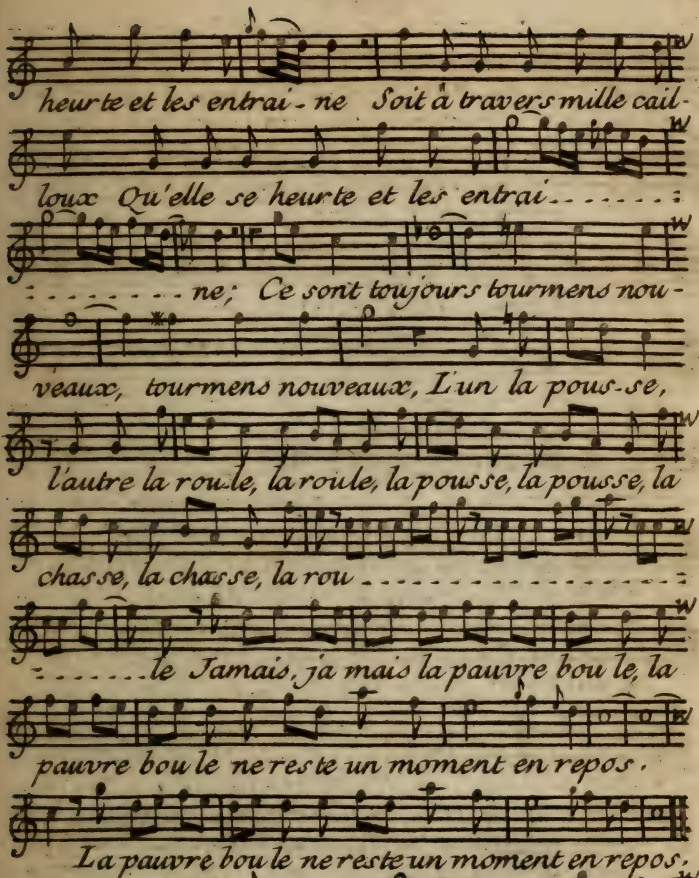 heurte et les entrai-ne Soit à travers mille cail-
loux Qu'elle se heurte et les entrai........:
:........ne; Ce sont toujours tourmens nou-
veaux, tourmens nouveaux, L'un la pous-se,
l'autre la rou-le, la roule, la pousse, la pousse, la
chasse, la chasse, la rou..................:
:.......le Jamais, ja mais la pauvre bou le, la
pauvre bou le ne reste un moment en repos.
La pauvre bou le ne reste un moment en repos.